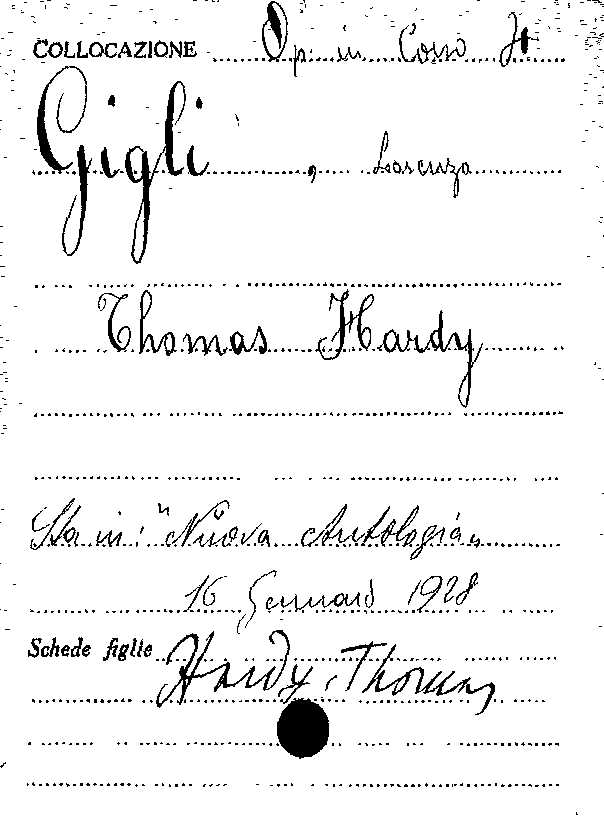 COLLOCAZIONE Op. in Corso It
Gigli, Lorenzo
Thomas Hardy
Sta in: "Nuova Antologia"
16 Gennaio 1928
Schede figlie Hardy, Thomas